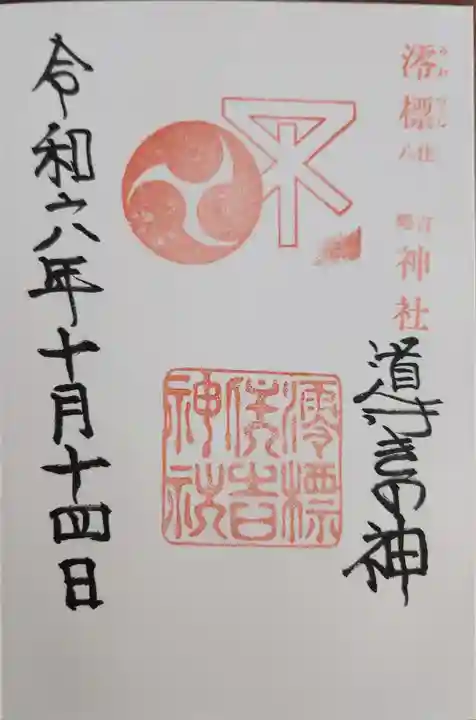 澪標
住吉
八郷
神社
道ひらきの神
澪標
住吉
神社
令和六年十月十四日